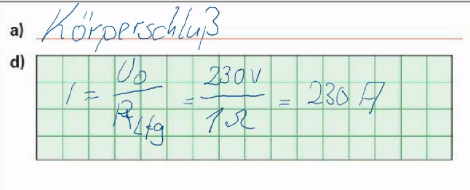 a) Körperschluß
d) I = U0 / RLtg = 230V / 1Ω = 230 A